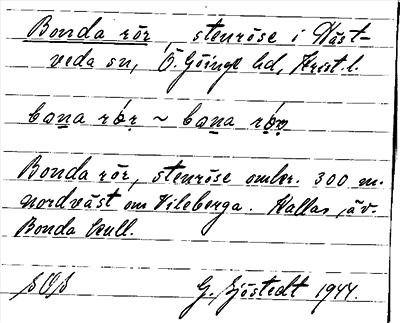 Bonda rör, stenröse i Näst-
veda sn, Ö. Göinge hd, Krist. l.
bona rör ~ bona rör
Bonda rör, stenröse omkr. 300 m.
nordväst om Vileberga. Kallas äv.
Bonda kull.
G. Sjöstedt 1944.